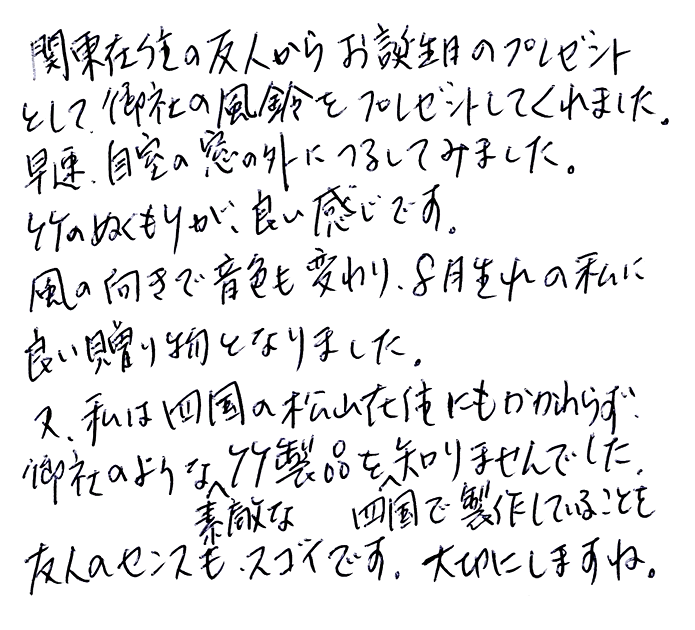 関東在住の友人からお誕生日のプレゼント
として、御社の風鈴をプレゼントしてくれました。
早速、自室の窓の外につるしてみました。
竹のぬくもりが、良い感じです。
風の向きで音色も変わり、8月生れの私に
良い贈り物となりました。
又、私は四国の松山在住にもかかわらず、
御社のような竹製品を知りませんでした。
素敵な 四国で製作していることを
友人のセンスも、スゴイです。大切にしますね。